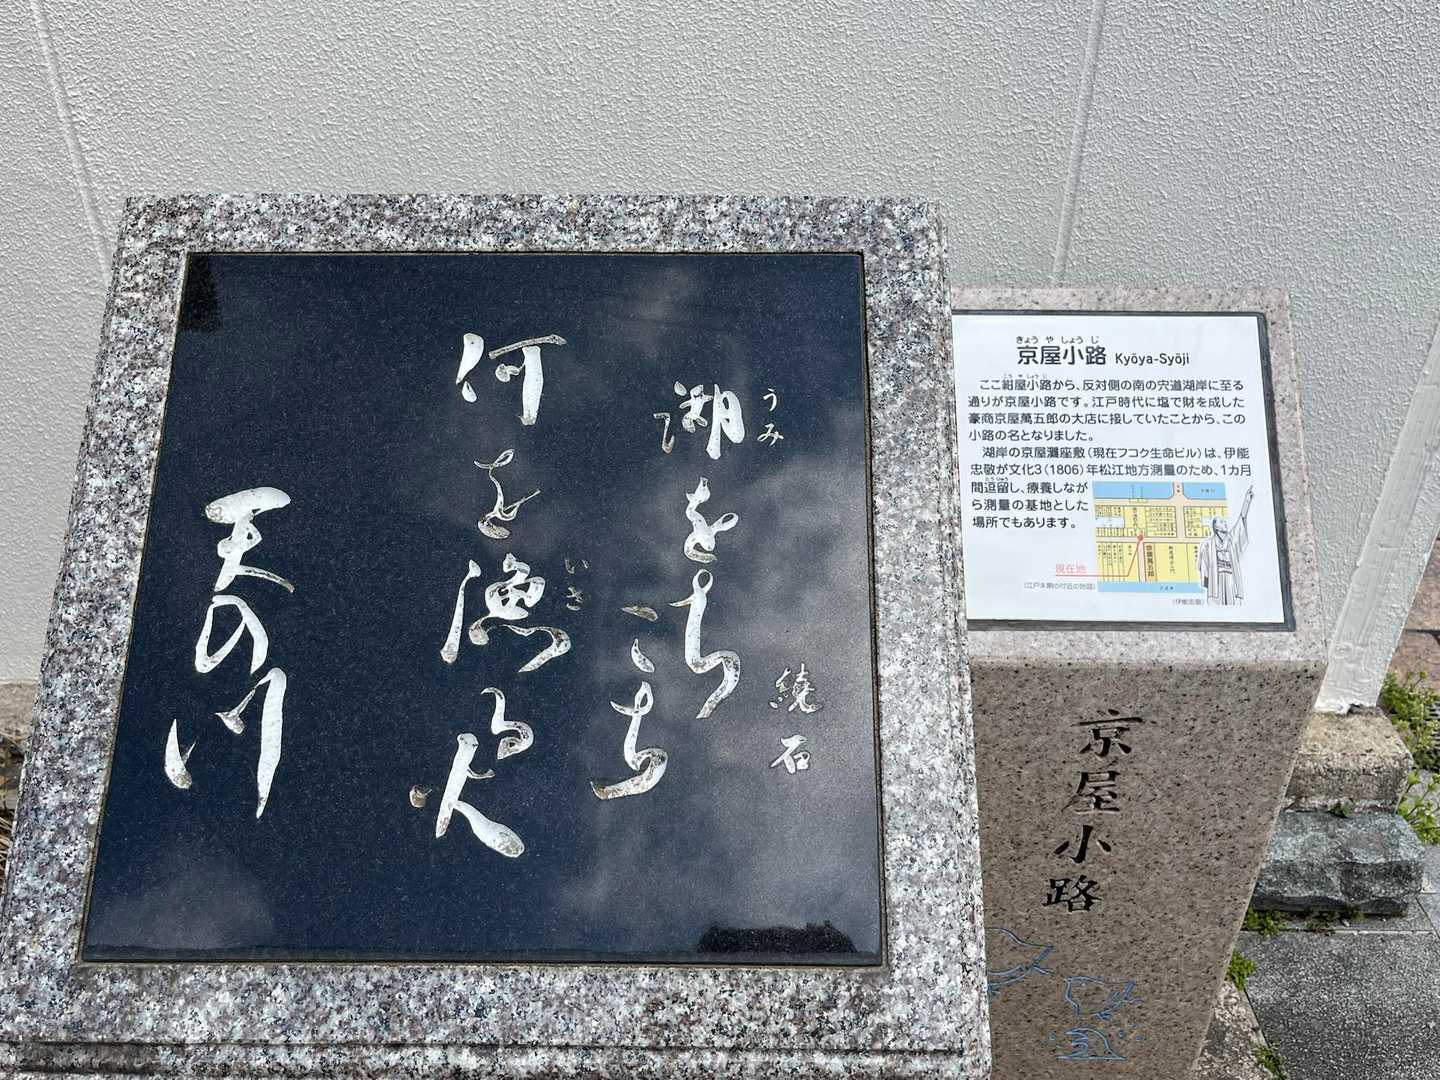 湖をちこち
うみ
何を漁る火
いさ
天の川
繞石
きょうやしょうじ
京屋小路 Kyōya-Syōji
こうやしょうじ
ここ紺屋小路から、反対側の南の宍道湖岸に至る
通りが京屋小路です。江戸時代に塩で財を成した
豪商京屋萬五郎の大店に接していたことから、この
小路の名となりました。
湖岸の京屋灘座敷(現在フコク生命ビル)は、伊能
忠敬が文化3(1806)年松江地方測量のため、1カ月
とうりゅう
間逗留し、療養しなが
ら測量の基地とした
場所でもあります。
京屋萬五郎
現在地
(江戸末期の付近の地図)
(伊能忠敬)
京屋小路